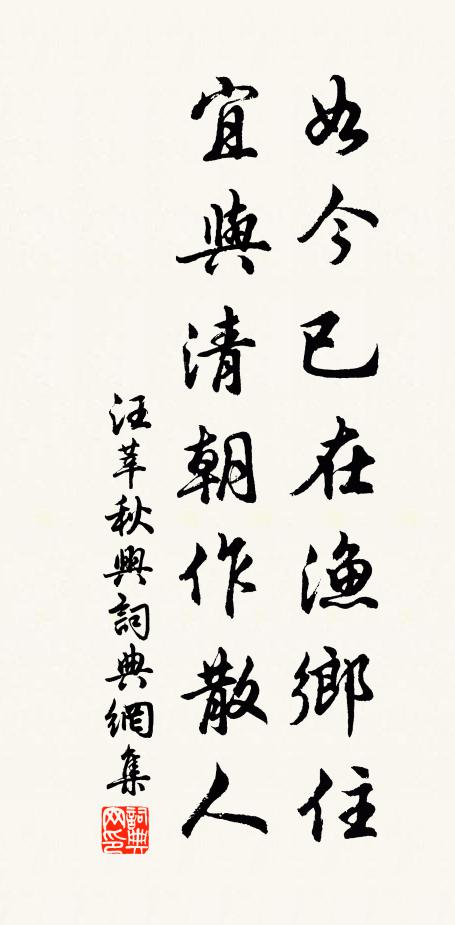 如今已在漁鄉住
宜與清朝作散人
汪莘秋興詞典網集
詞典网印